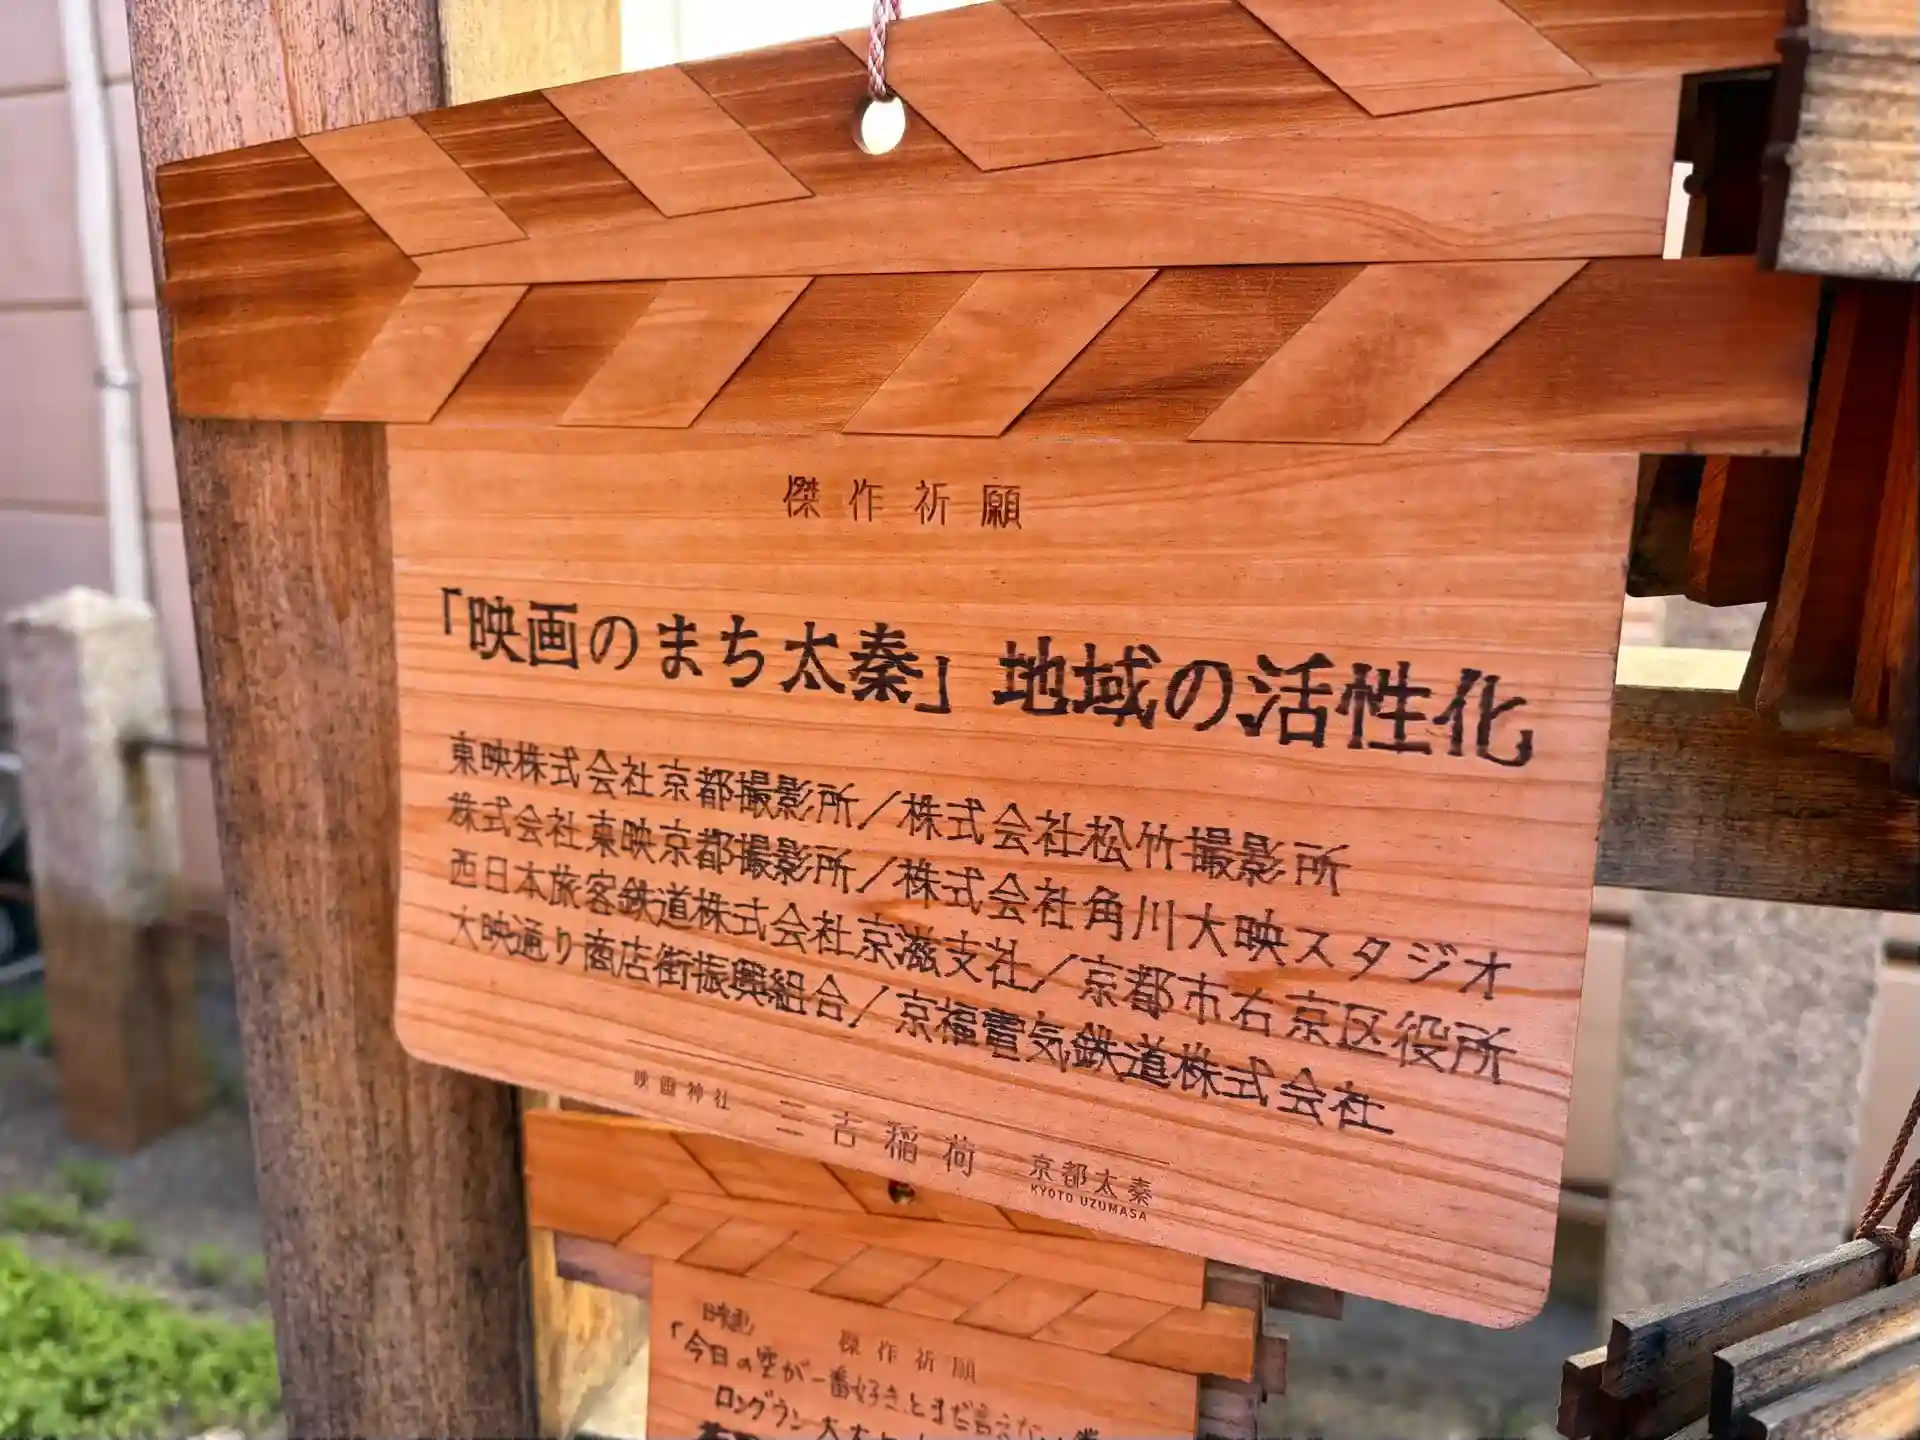 傑作祈願
「映画のまち太秦」地域の活性化
東映株式会社京都撮影所／株式会社松竹撮影所
株式会社東映京都撮影所／株式会社角川大映スタジオ
西日本旅客鉄道株式会社京滋支社／京都市右京区役所
大映通り商店街振興組合／京福電気鉄道株式会社
映画神社 三吉稲荷 京都太秦
KYOTO UZUMASA
映画
傑作祈願
「今日の空が一番好き、とまだ言えない僕
ロングラン大